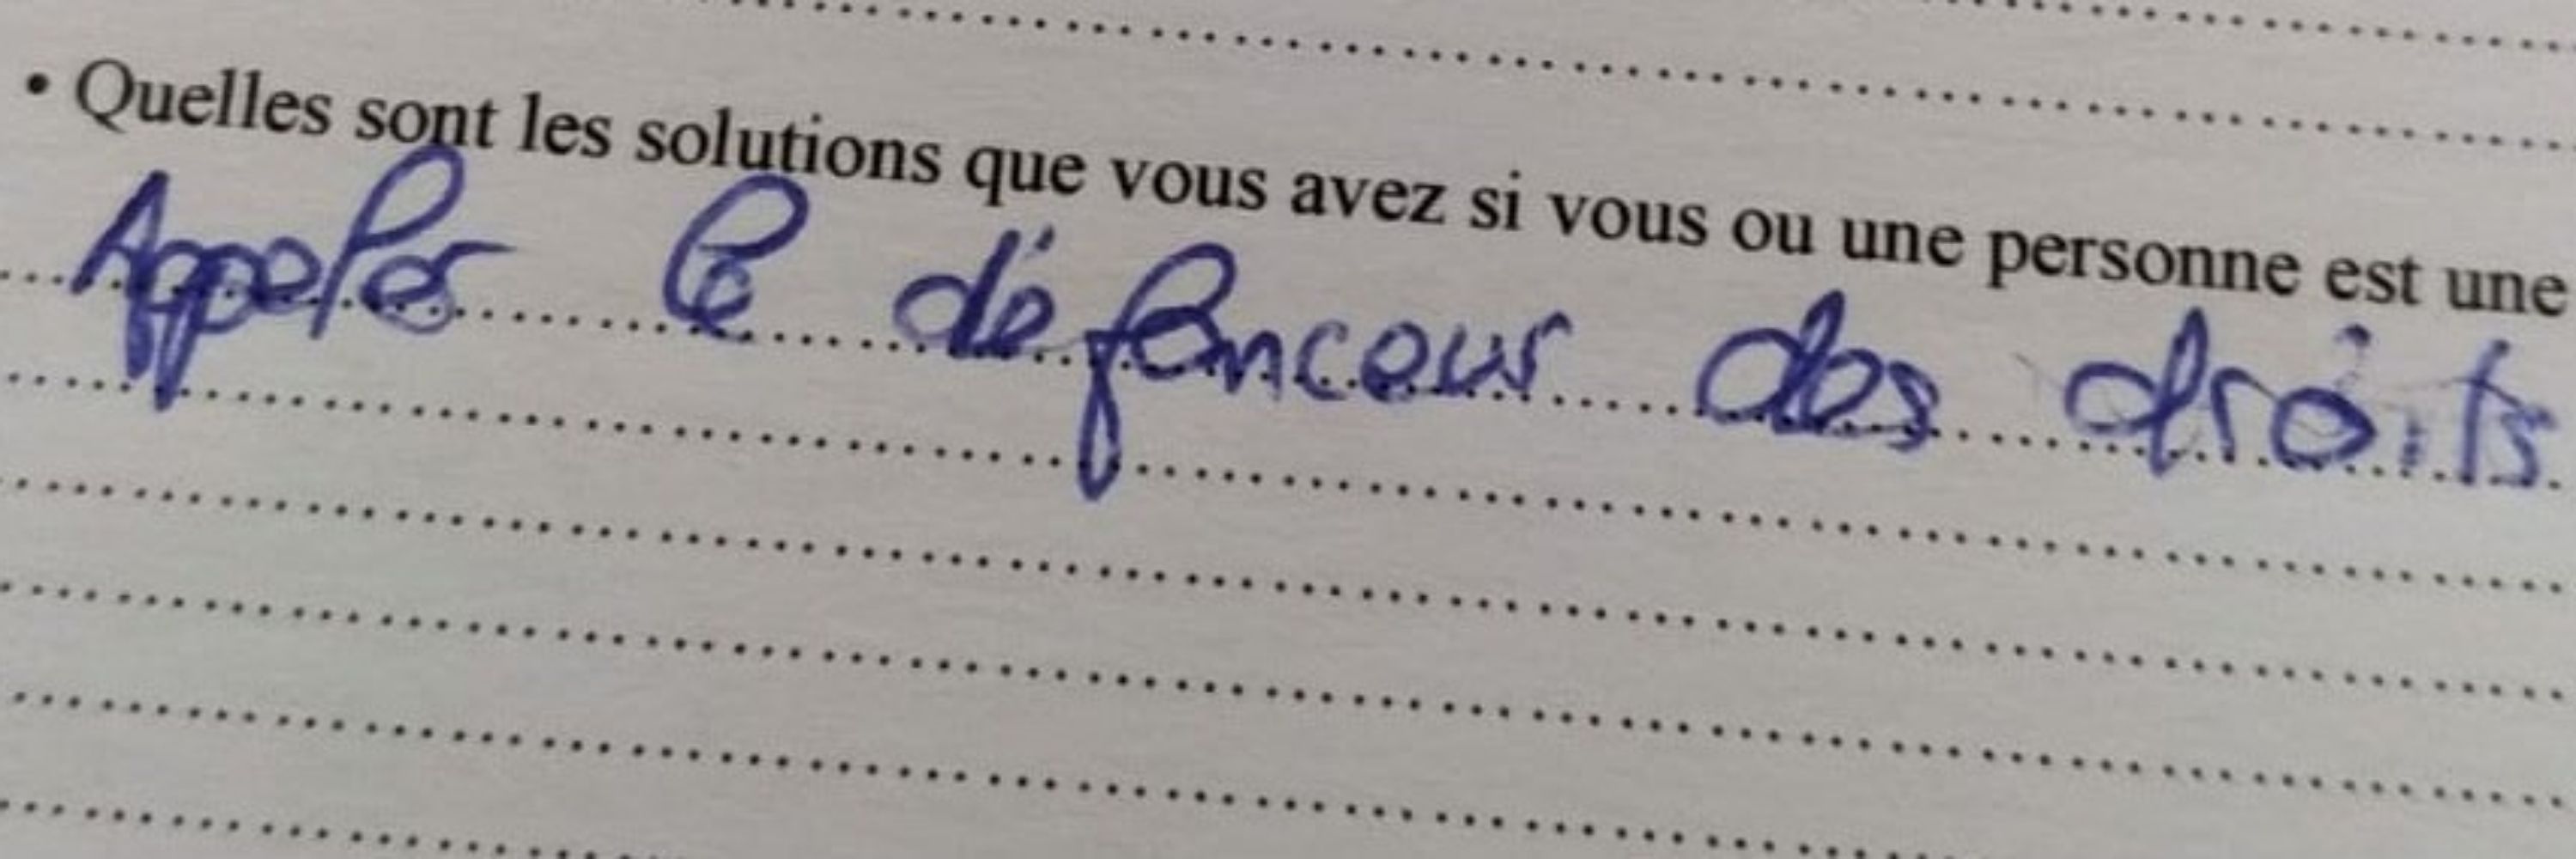 • Quelles sont les solutions que vous avez si vous ou une personne est une
Appeler le défonceur des droits